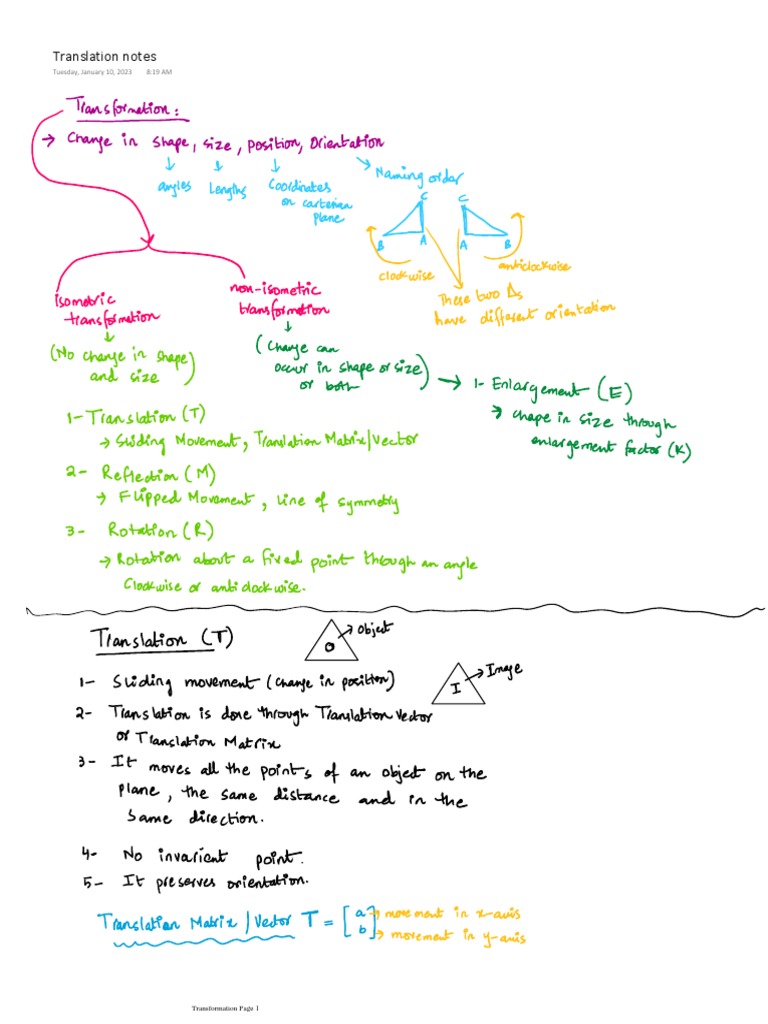 Translation notes
Tuesday, January 10, 2023 8:19 AM
Transformation:
→ Change in shape, size, position, Orientation
angles
Lengths
Coordinates
on carterian
plane
Naming order
C
B
A
C
A
B
clockwise
anticlockwise
These two Δs
have different orientation
isometric
transformation
non-isometric
transformation
(No change in shape
and size)
(Change can
occur in shape or size
or both)
→ 1- Enlargement (E)
→ chape in size through
enlargement factor (K)
1- Translation (T)
→ Sliding Movement, Translation Matrix/Vector
2- Reflection (M)
→ Flipped Movement, Line of symmetry
3- Rotation (R)
→ Rotation about a fixed point through an angle
Clockwise or anticlockwise.
Translation (T)
O
→ Object
I
→ Image
1- Sliding movement (change in position)
2- Translation is done through Translation Vector
or Translation Matrix
3- It moves all the points of an object on the
plane, the same distance and in the
same direction.
4- No invarient point.
5- It preserves orientation.
Translation Matrix / Vector T = [a b]
→ movement in x-axis
→ movement in y-axis
Transformation Page 1